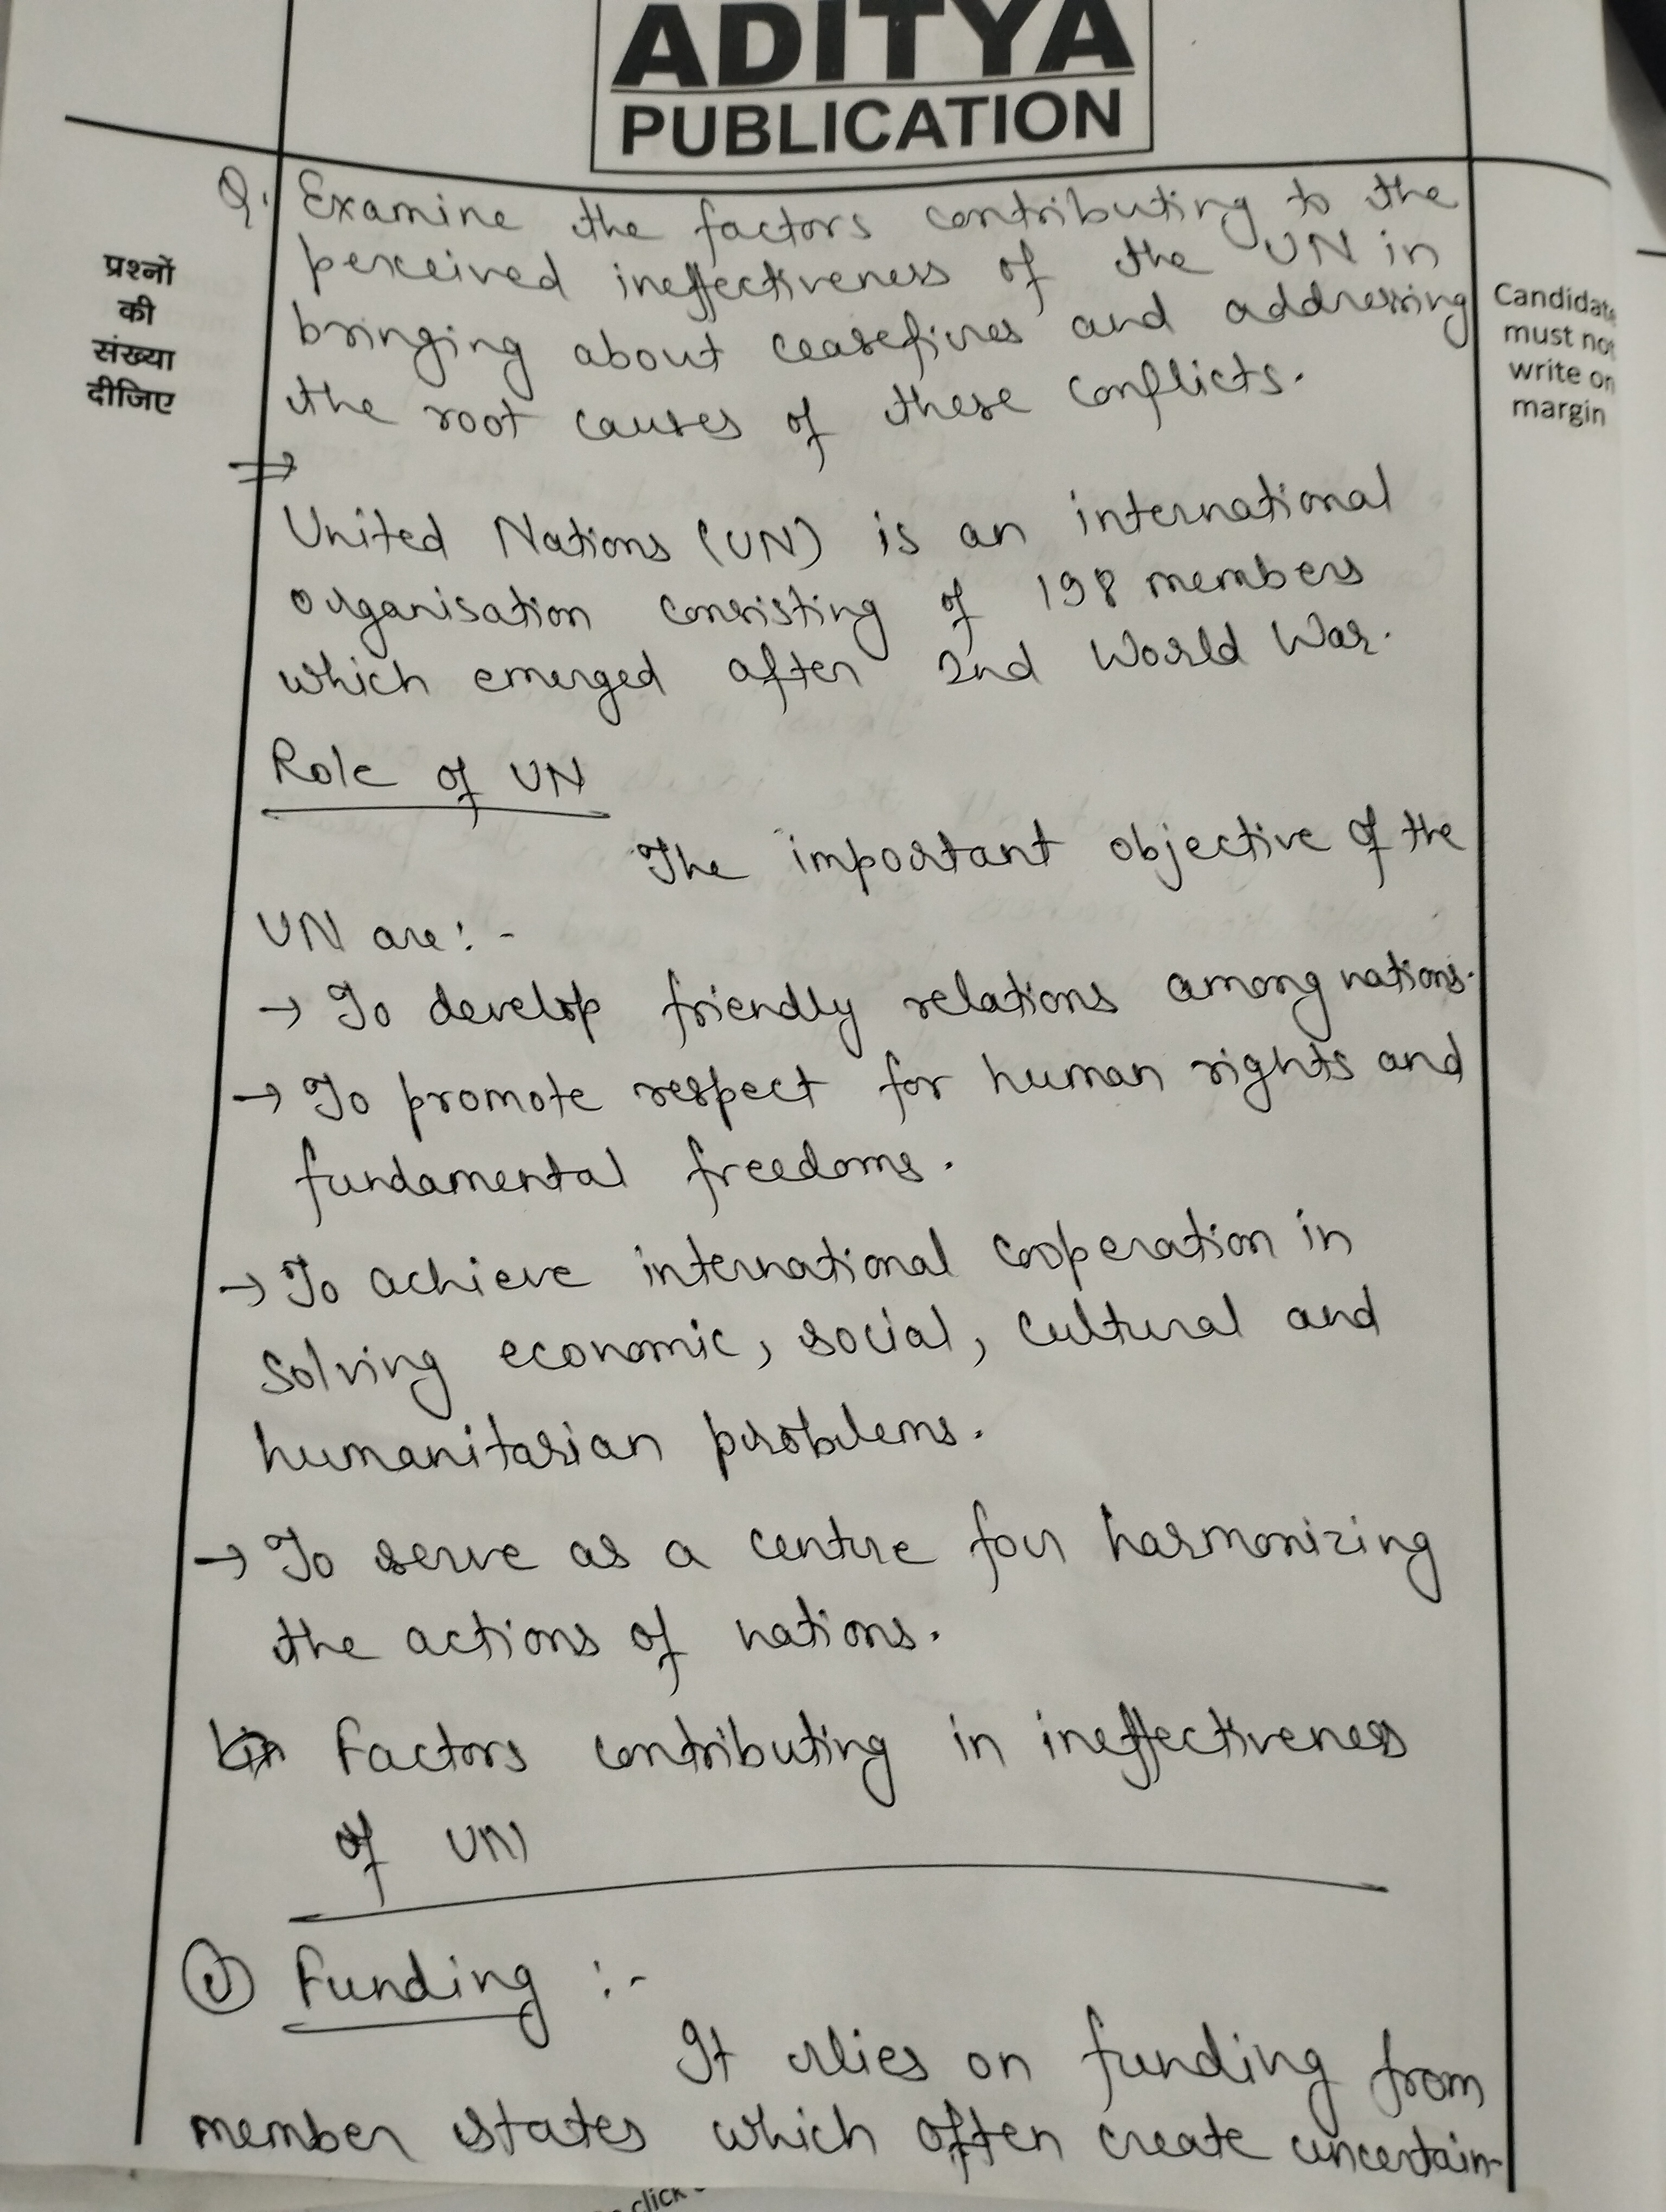 ADITYA
PUBLICATION
Q. Examine the factors contributing to the
perceived ineffectiveness of the UN in
bringing about ceasefires and addressing
the root causes of these conflicts.
प्रश्नों
की
संख्या
दीजिए
Candidate
must not
write on
margin
⇒
United Nations (UN) is an international
organisation consisting of 198 members
which emerged after 2nd World War.
Role of UN
The important objective of the
UN are:-
→ To develop friendly relations among nations.
→ To promote respect for human rights and
fundamental freedoms.
→ To achieve international cooperation in
solving economic, social, cultural and
humanitarian problems.
→ To serve as a centre for harmonizing
the actions of nations.
Factors contributing in ineffectiveness
of UN
① Funding :-
It relies on funding from
member states which often create uncertain-
click